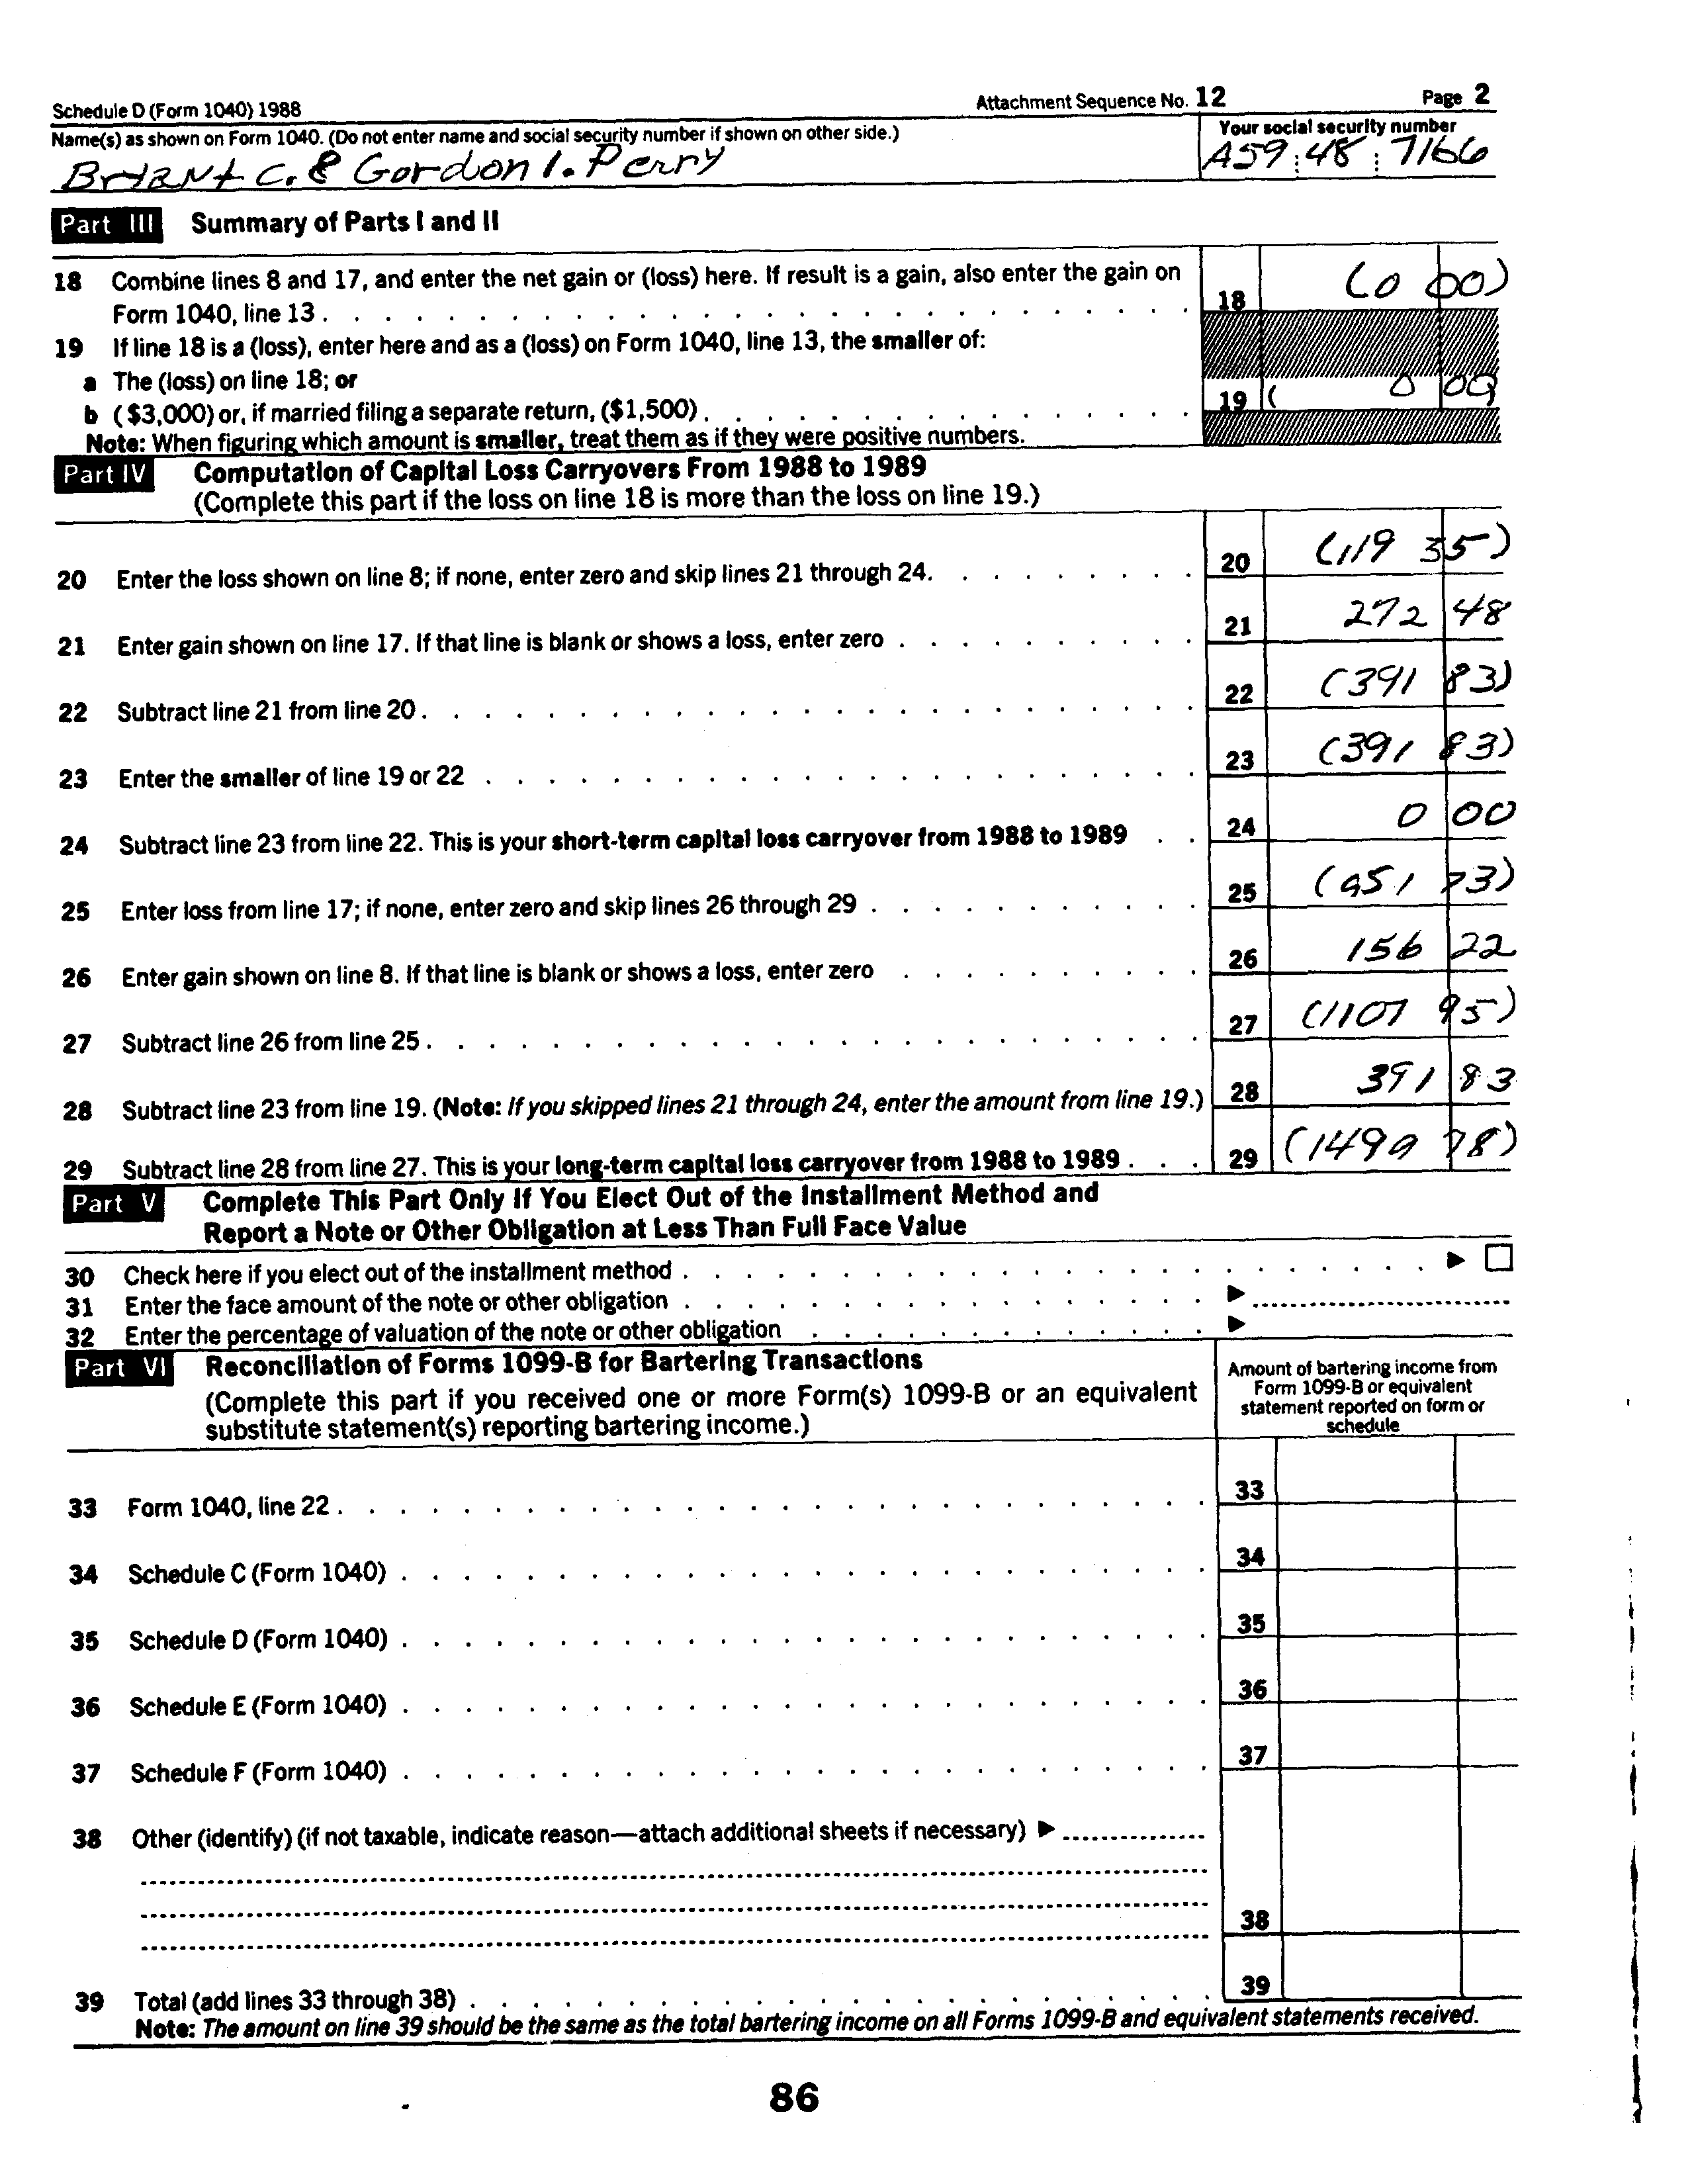 Schedule D (Form 1040) 1988 Attachment Sequence No. 12 Page 2
Name(s) as shown on Form 1040. (Do not enter name and social security number if shown on other side.) Your social security number
C. & Gordon I. Perry A59 48 7166
Part III Summary of Parts I and II
18 Combine lines 8 and 17, and enter the net gain or (loss) here. If result is a gain, also enter the gain on
Form 1040, line 13 18 (0 00)
19 If line 18 is a (loss), enter here and as a (loss) on Form 1040, line 13, the smaller of:
a The (loss) on line 18; or
b ($3,000) or, if married filing a separate return, ($1,500) 19 ( 0 00)
Note: When figuring which amount is smaller, treat them as if they were positive numbers.
Part IV Computation of Capital Loss Carryovers From 1988 to 1989
(Complete this part if the loss on line 18 is more than the loss on line 19.)
20 Enter the loss shown on line 8; if none, enter zero and skip lines 21 through 24. 20 (119 35)
21 Enter gain shown on line 17. If that line is blank or shows a loss, enter zero 21 272 48
22 Subtract line 21 from line 20 22 (391 83)
23 Enter the smaller of line 19 or 22 23 (391 83)
24 Subtract line 23 from line 22. This is your short-term capital loss carryover from 1988 to 1989 24 0 00
25 Enter loss from line 17; if none, enter zero and skip lines 26 through 29 25 (951 73)
26 Enter gain shown on line 8. If that line is blank or shows a loss, enter zero 26 156 22
27 Subtract line 26 from line 25 27 (1107 95)
28 Subtract line 23 from line 19. (Note: If you skipped lines 21 through 24, enter the amount from line 19.) 28 391 83
29 Subtract line 28 from line 27. This is your long-term capital loss carryover from 1988 to 1989 29 (1499 78)
Part V Complete This Part Only If You Elect Out of the Installment Method and
Report a Note or Other Obligation at Less Than Full Face Value
30 Check here if you elect out of the installment method
31 Enter the face amount of the note or other obligation
32 Enter the percentage of valuation of the note or other obligation
Part VI Reconciliation of Forms 1099-B for Bartering Transactions
(Complete this part if you received one or more Form(s) 1099-B or an equivalent
substitute statement(s) reporting bartering income.)
Amount of bartering income from
Form 1099-B or equivalent
statement reported on form or
schedule
33 Form 1040, line 22 33
34 Schedule C (Form 1040) 34
35 Schedule D (Form 1040) 35
36 Schedule E (Form 1040) 36
37 Schedule F (Form 1040) 37
38 Other (identify) (if not taxable, indicate reason—attach additional sheets if necessary)
38
39 Total (add lines 33 through 38) 39
Note: The amount on line 39 should be the same as the total bartering income on all Forms 1099-B and equivalent statements received.
86